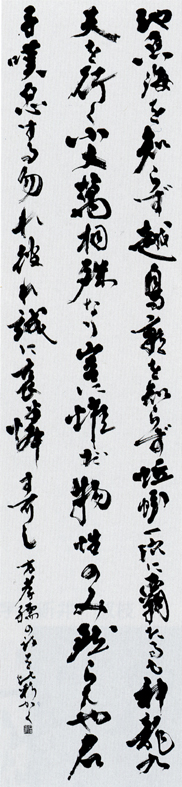 池魚海を知らず越鳥燕を知らず蚯蚓一穴に霸たるも神龍九
天を行く小大萬相殊なり豈に惟だ物性のみ然らんや君
子嘆息する勿れ彼れ誠に哀憐す可し 方孝孺の詩を かく